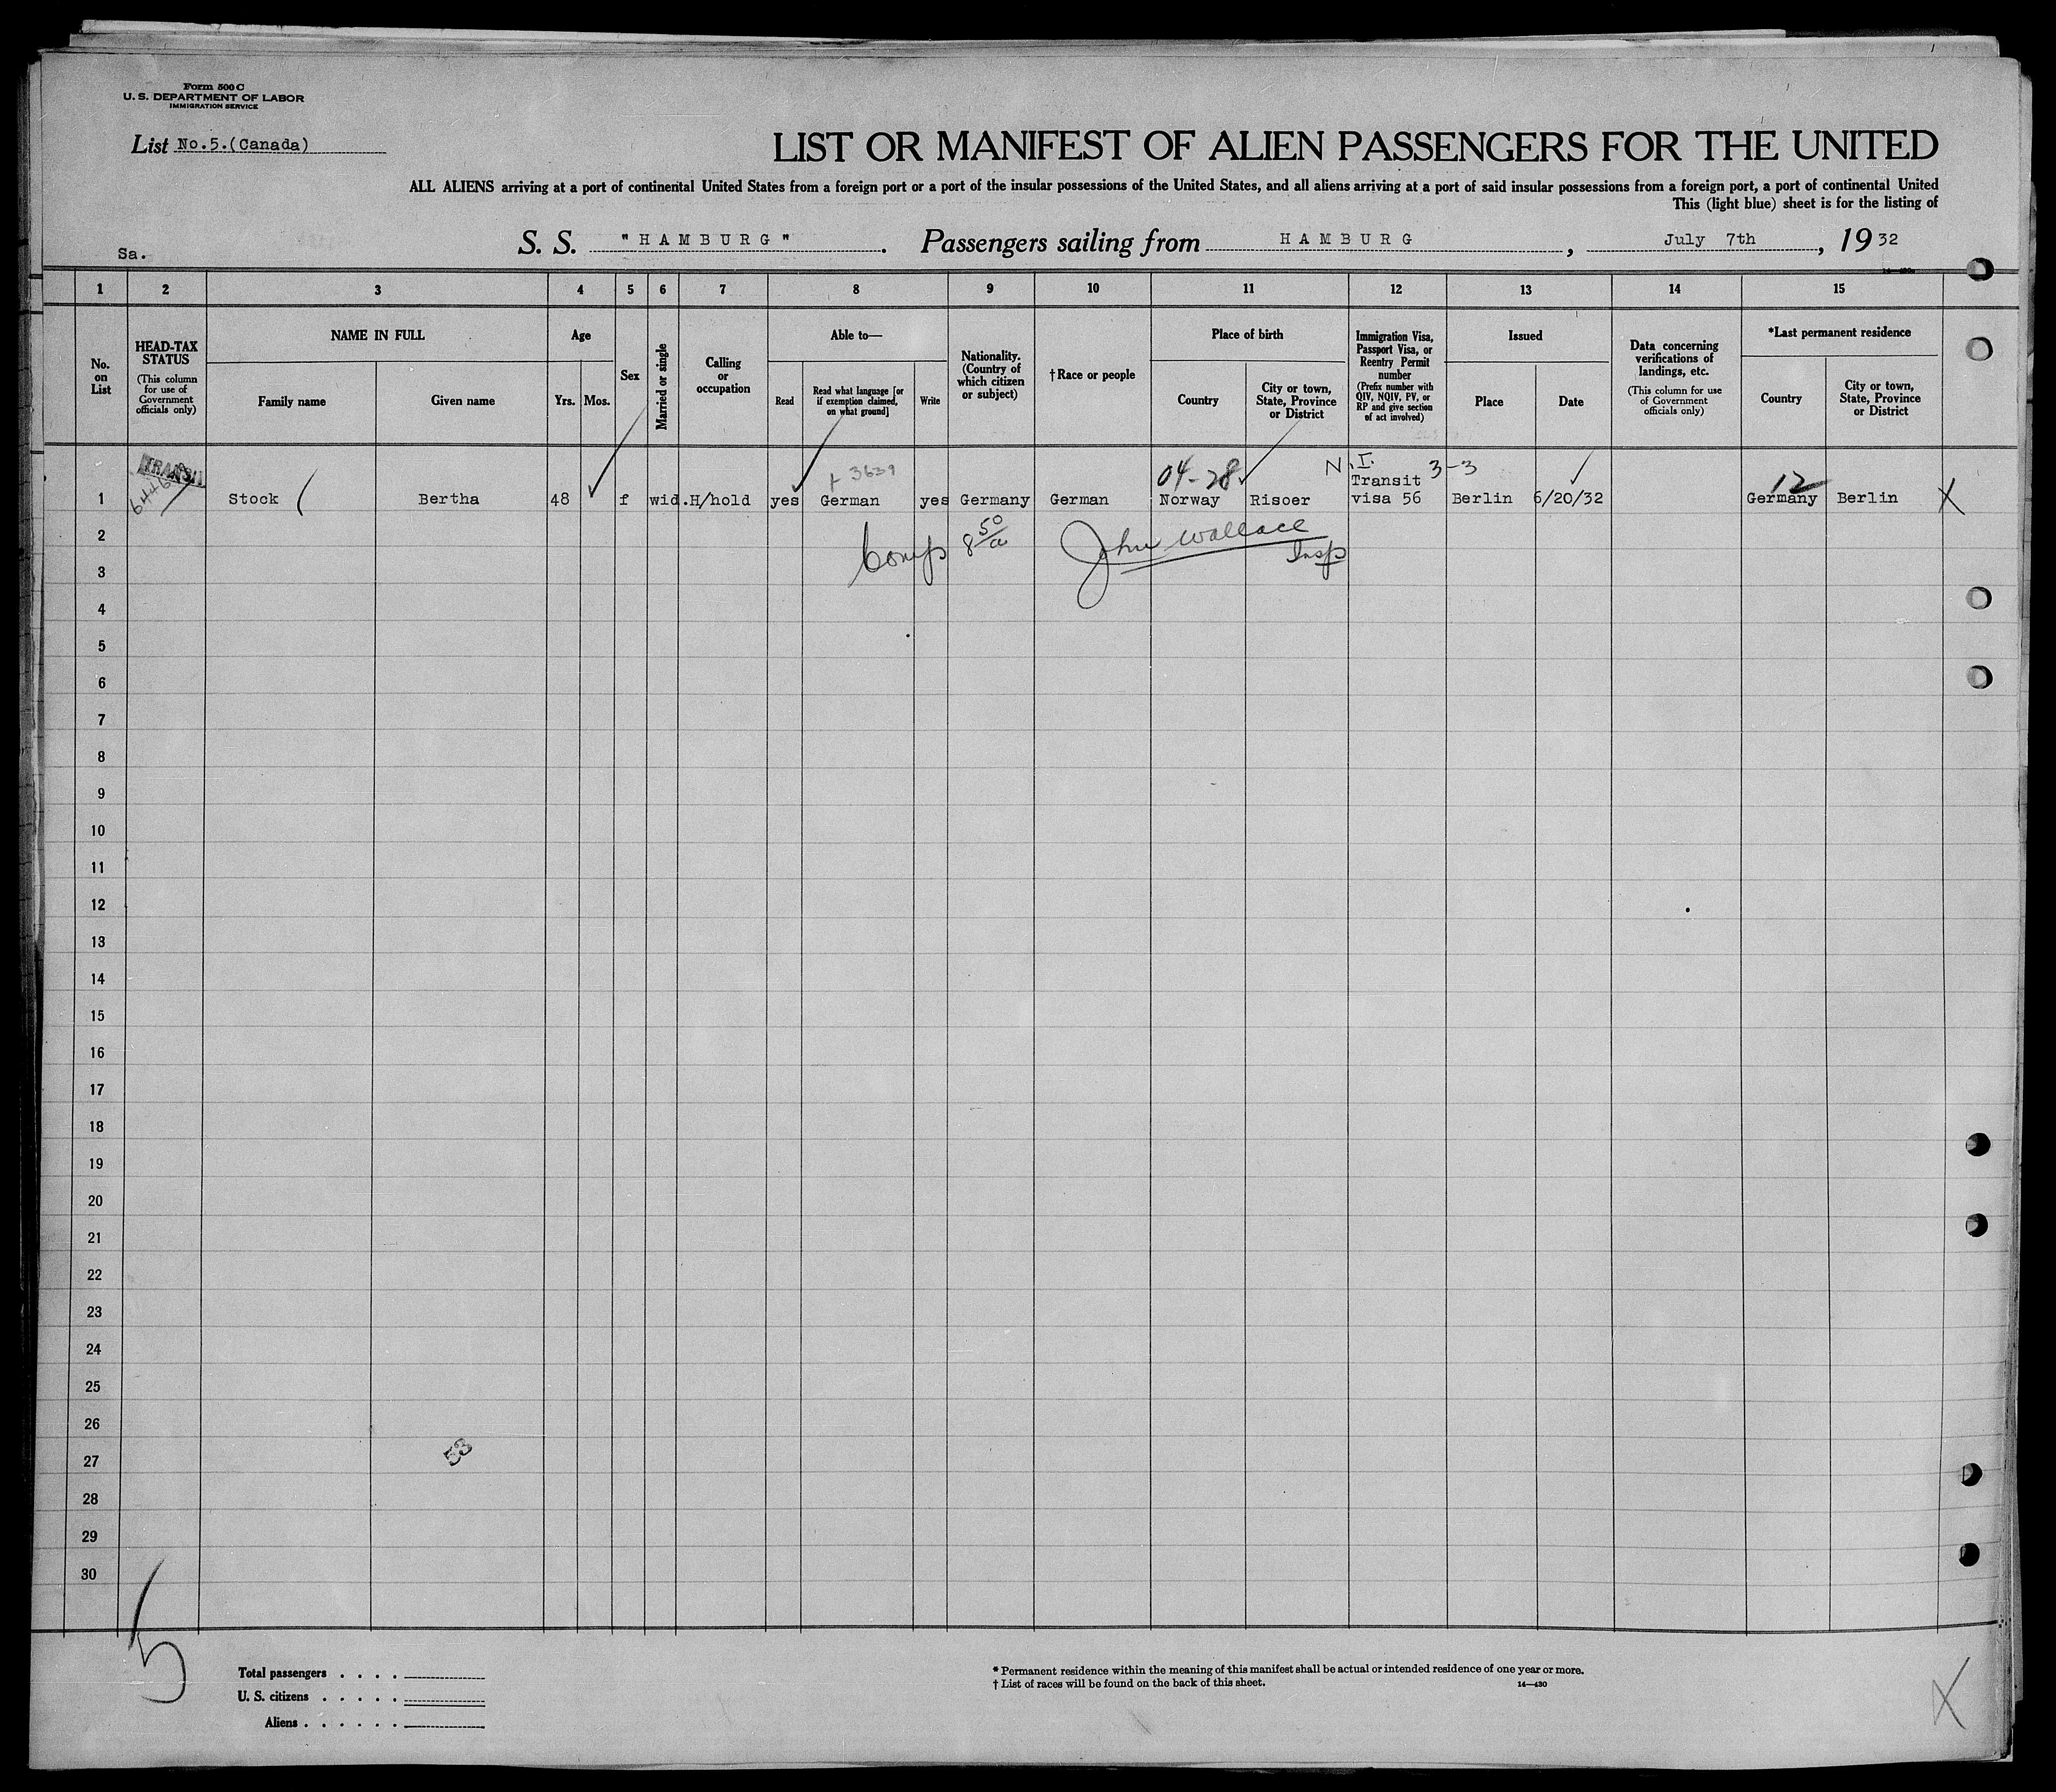 Form 500 C
U. S. DEPARTMENT OF LABOR
IMMIGRATION SERVICE
List No.5.(Canada)
LIST OR MANIFEST OF ALIEN PASSENGERS FOR THE UNITED
ALL ALIENS arriving at a port of continental United States from a foreign port or a port of the insular possessions of the United States, and all aliens arriving at a port of said insular possessions from a foreign port, a port of continental United
This (light blue) sheet is for the listing of
Sa.
S. S. "HAMBURG". Passengers sailing from HAMBURG, July 7th, 1932
1 2 3 4 5 6 7 8 9 10 11 12 13 14 15
No. on List
HEAD-TAX STATUS
(This column for use of Government officials only)
NAME IN FULL
Family name
Given name
Age
Yrs.
Mos.
Sex
Married or single
Calling or occupation
Able to—
Read
Read what language [or if exemption claimed, on what ground]
Write
Nationality. (Country of which citizen or subject)
†Race or people
Place of birth
Country
City or town, State, Province or District
Immigration Visa, Passport Visa, or Reentry Permit number
(Prefix number with QIV, NQIV, PV, or RP and give section of act involved)
Issued
Place
Date
Data concerning verifications of landings, etc.
(This column for use of Government officials only)
*Last permanent residence
Country
City or town, State, Province or District
TRANSIT
+ 3639
04-28
N.I.
3-3
12
Transit
1 Stock Bertha 48 f wid. H/hold yes German yes Germany German Norway Risoer visa 56 Berlin 6/20/32 Germany Berlin X
2
8 50/a John Wallace
3
Insp
4
5
6
7
8
9
10
11
12
13
14
15
16
17
18
19
20
21
22
23
24
25
26
27
53
28
29
30
5
Total passengers . . . .
U. S. citizens . . . . .
Aliens . . . . . .
* Permanent residence within the meaning of this manifest shall be actual or intended residence of one year or more.
† List of races will be found on the back of this sheet.
14—430
X